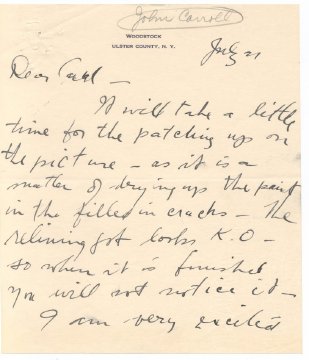 John Carroll
WOODSTOCK
ULSTER COUNTY, N. Y.
July 21
Dear Carl –
It will take a little
time for the patching up on
the picture – as it is a
matter of drying up the paint
in the filled in cracks – The
relining job looks K.O –
so when it is finished
you will not notice it –
I am very excited